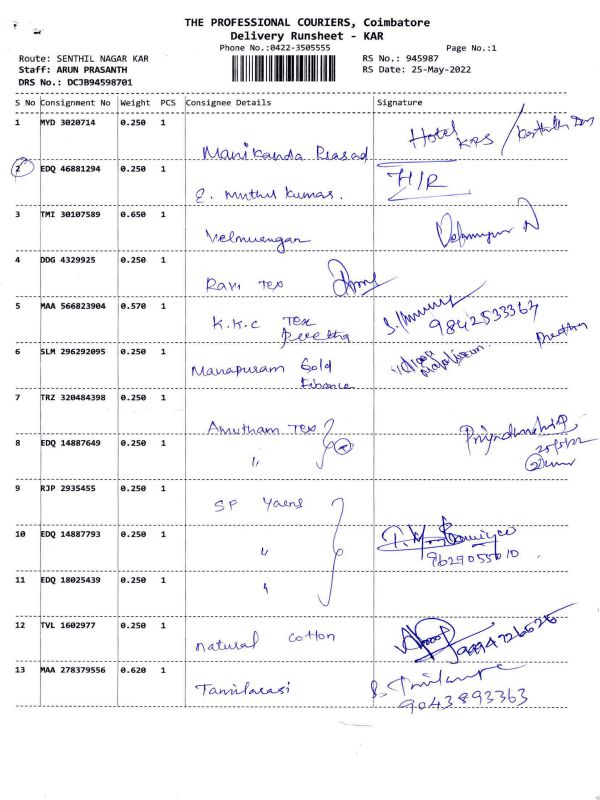 THE PROFESSIONAL COURIERS, Coimbatore
Delivery Runsheet - KAR
Phone No.:0422-3505555
Page No.:1
Route: SENTHIL NAGAR KAR
RS No.: 945987
Staff: ARUN PRASANTH
RS Date: 25-May-2022
DRS No.: DCJB94598701
S No Consignment No Weight PCS Consignee Details Signature
1 MYD 3020714 0.250 1 Manikanda Prasad Hotel KRS /
2 EDQ 46881294 0.250 1 E. Muthu Kumar. H/R
3 TMI 30107589 0.650 1 Velmurugan
4 DDG 4329925 0.250 1 Ravi Tex
5 MAA 566823904 0.570 1 K.K.C Tex 9842533367
6 SLM 296292095 0.250 1 Manapuram Gold Finance
7 TRZ 320484398 0.250 1 Amutham Tex
8 EDQ 14887649 0.250 1 " 25/5/22
9 RJP 2935455 0.250 1 SP Yarns
10 EDQ 14887793 0.250 1 " 9629055010
11 EDQ 18025439 0.250 1 "
12 TVL 1602977 0.250 1 natural cotton
13 MAA 278379556 0.620 1 Tamilarasi 9043893363